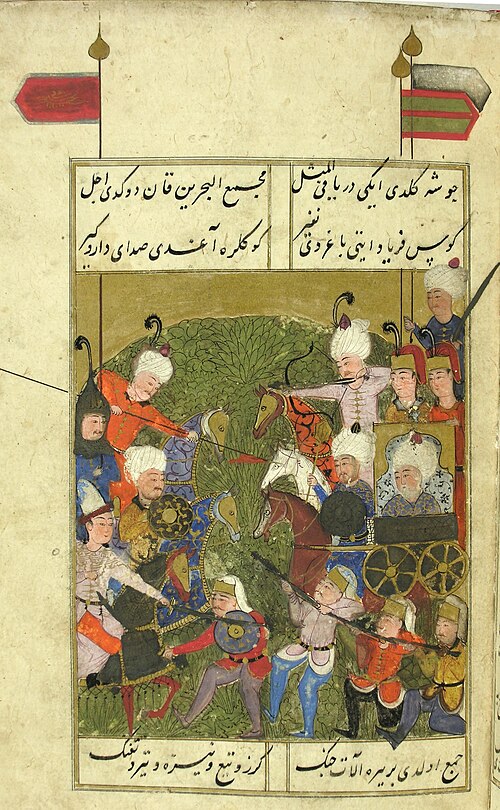 جوشه کلدی ایکی دریا فی المثل
مجمع البحرین قان دوکدی اجل
کوس فریاد ایتدی باغردی نفیر
کوکلره آغدی صدای دار و کیر
جمع اولدی بر یره آلات جنک
کرز و تیغ و نیزه و تیر و تفنک